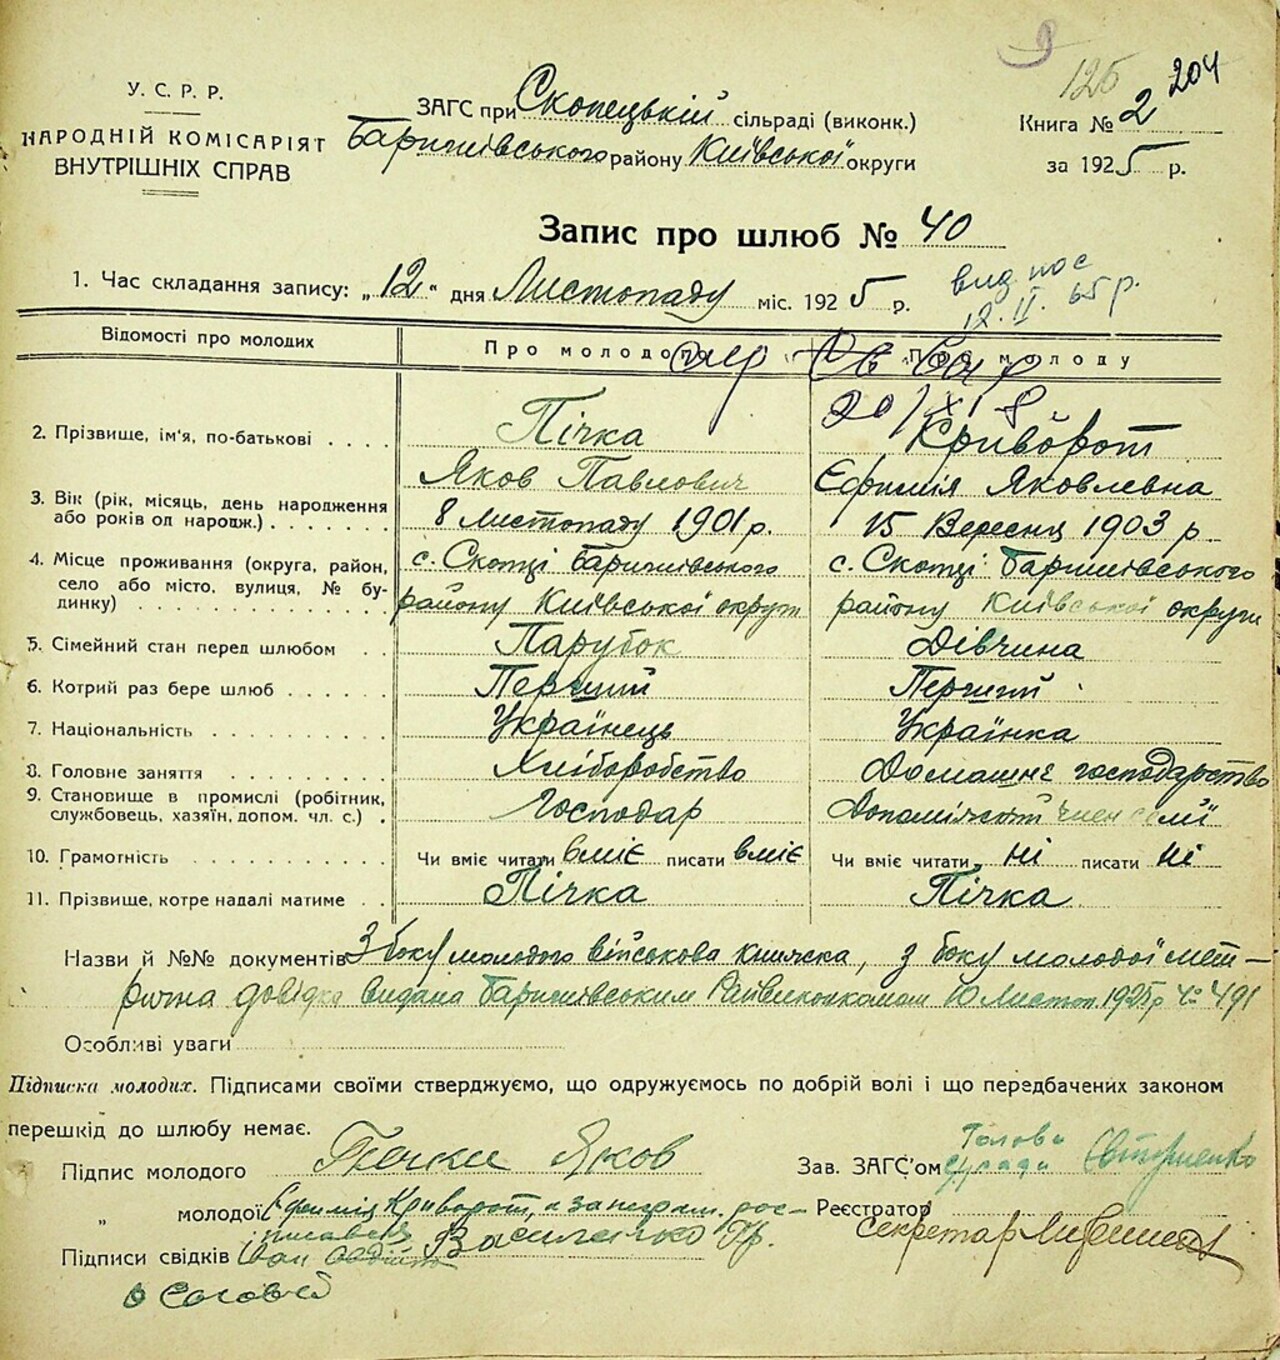 125 204
У. С. Р. Р.
НАРОДНІЙ КОМІСАРІЯТ
ВНУТРІШНІХ СПРАВ
ЗАГС при Скопецькій сільраді (виконк.)
Баришівського району Київської округи
Книга № 2
за 1925 р.
Запис про шлюб № 40
1. Час складання запису: „12" дня Листопаду міс. 1925 р.
12. II. 65 р.
Відомості про молодих Про молодого Про молоду
2. Прізвище, ім'я, по-батькові . . . . Пічка Криворот
Яков Павлович Єфимія Яковлевна
3. Вік (рік, місяць, день народження
або років од народж.) . . . . . . . 8 Листопаду 1901 р. 15 Вересня 1903 р
4. Місце проживання (округа, район, с. Скопці Баришівського с. Скопці Баришівського
село або місто, вулиця, № бу-
динку) . . . . . . . . . . . . . . району Київської округи району Київської округи
5. Сімейний стан перед шлюбом . . Парубок Дівчина
6. Котрий раз бере шлюб . . . . . . Перший Перший
7. Національність . . . . . . . . . . Українець Українка
8. Головне заняття . . . . . . . . . Хліборобство Домашнє господарство
9. Становище в промислі (робітник,
службовець, хазяїн, допом. чл. с.) . Господар член семї
10. Грамотність . . . . . . . . . . . Чи вміє читати вміє писати вміє Чи вміє читати ні писати ні
11. Прізвище, котре надалі матиме . . Пічка Пічка
Назви й №№ документів З боку молодого військова книжка, з боку молодої мет-
рична довідка видана Баришівським Райвиконкомом 10 Листоп. 1925 р № 491
Особливі уваги
Підписка молодих. Підписами своїми стверджуємо, що одружуємось по добрій волі і що передбачених законом
перешкід до шлюбу немає.
Підпис молодого Яков
Зав. ЗАГС'ом Голова
„ молодої Єфимія Криворот, а за неграм. рос-
Реєстратор секретар
Підписи свідків Василенко